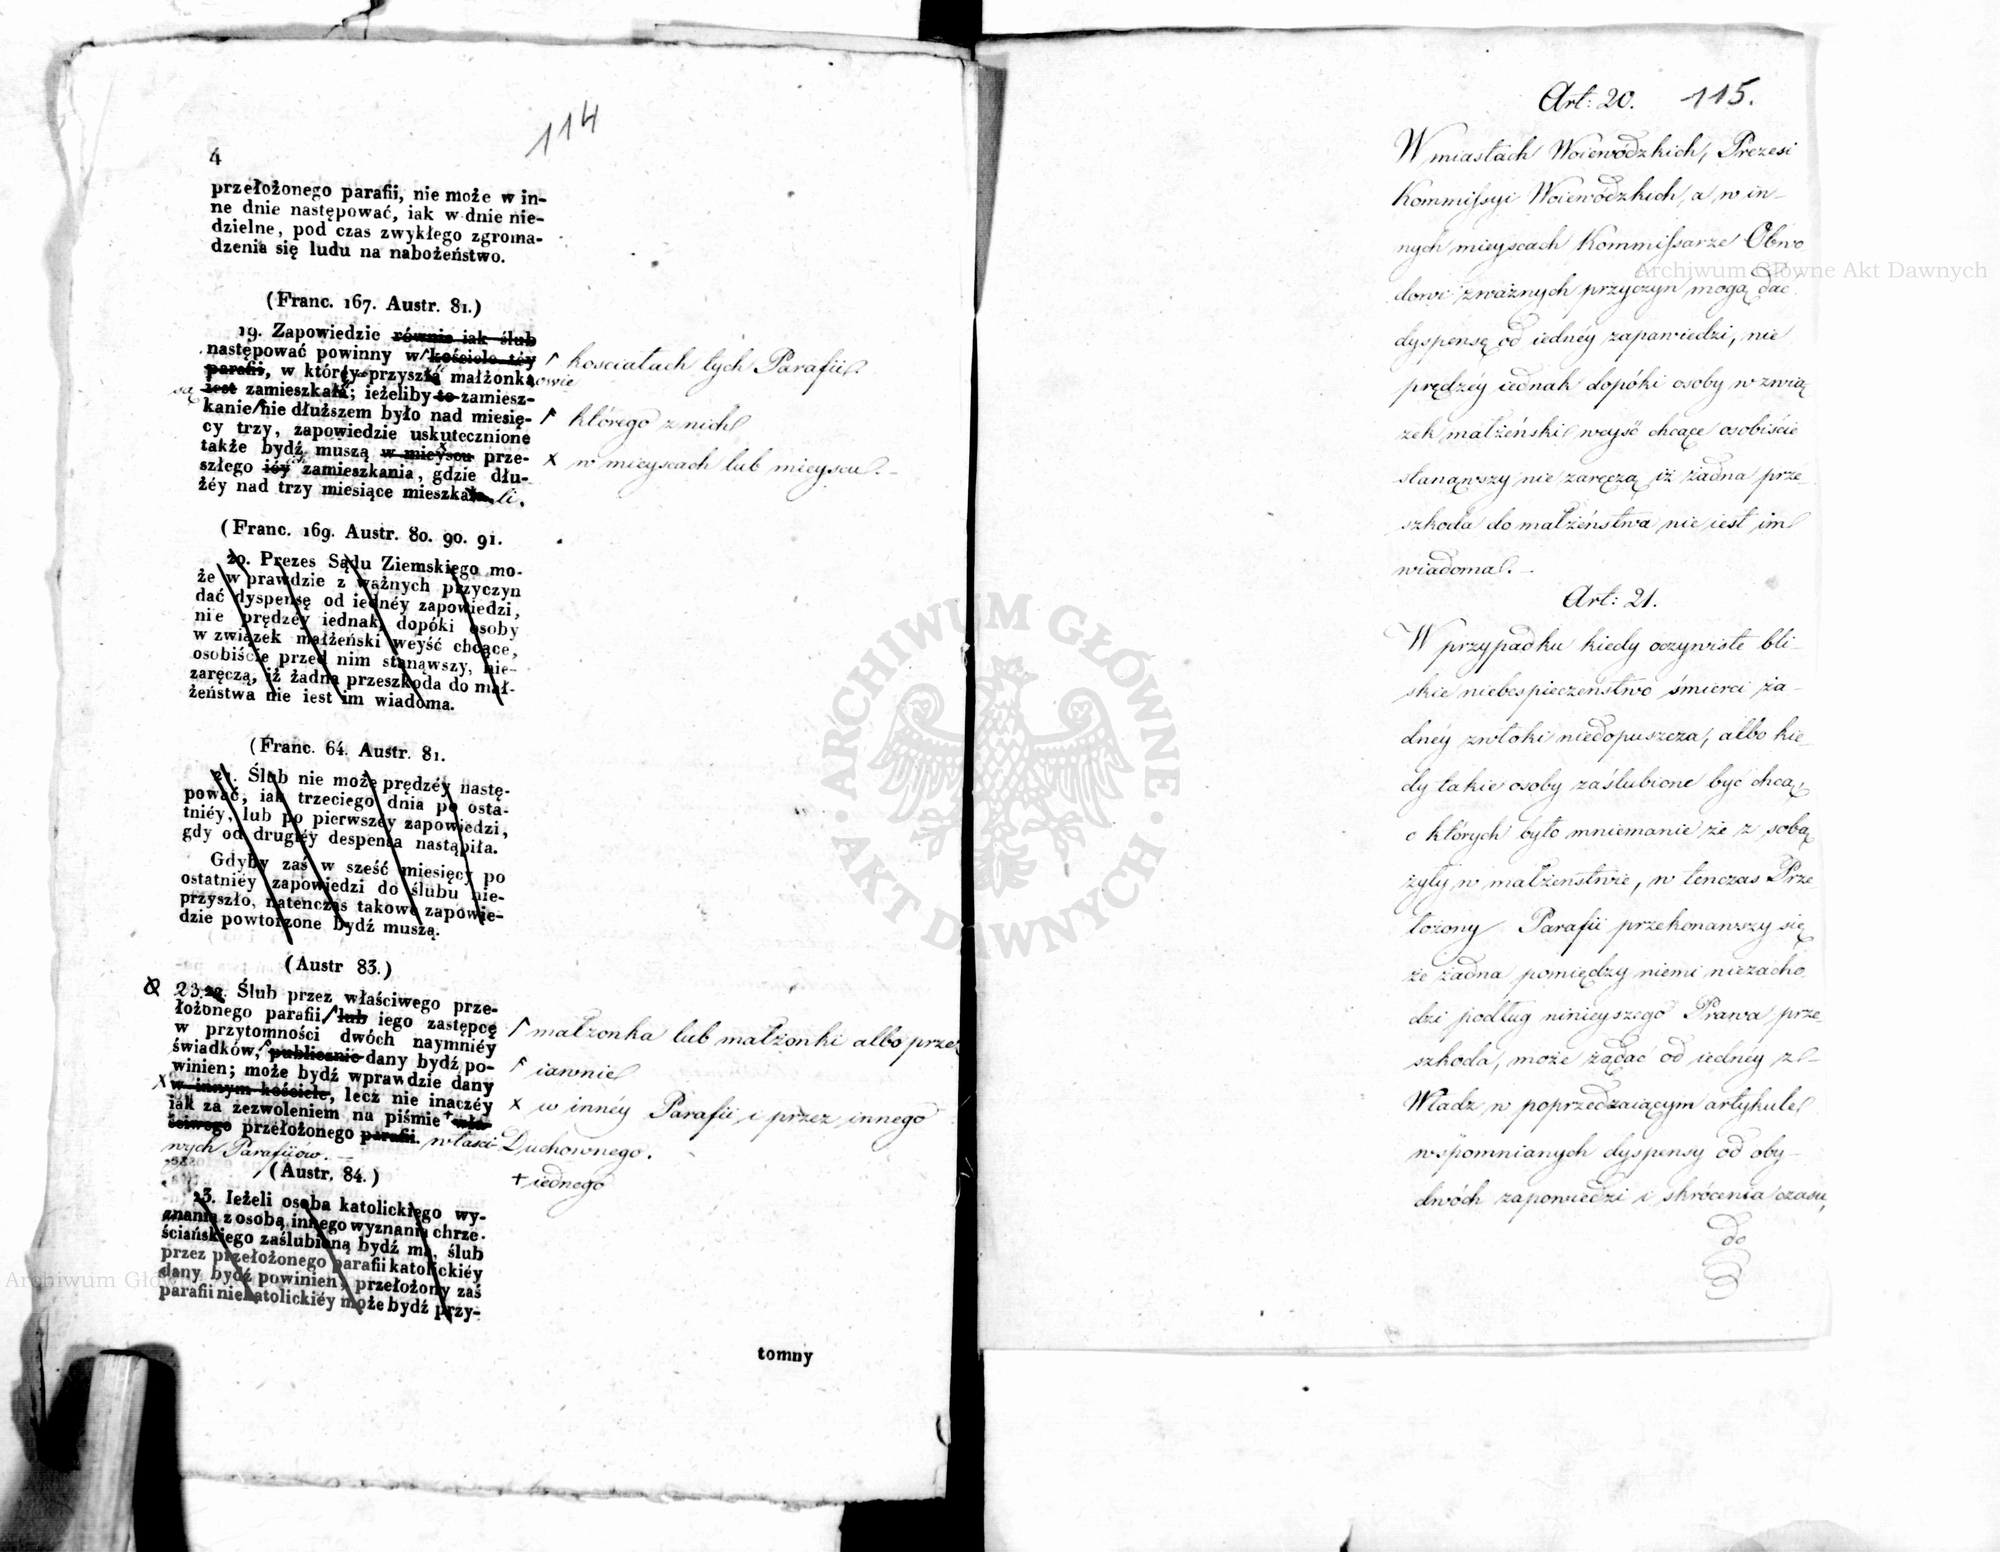 114
4
przełożonego parafii, nie może w in-
ne dnie następować, iak w dnie nie-
dzielne, pod czas zwykłego zgroma-
dzenia się ludu na nabożeństwo.
(Franc. 167. Austr. 81.)
19. Zapowiedzie równie iak ślub
następować powinny w kościele téy
parafii, w któréy przyszła małżonka
są iest zamieszkała; ieżeliby to zamiesz-
kanie nie dłuższem było nad miesię-
cy trzy, zapowiedzie uskutecznione
także bydź muszą w mieyscu prze-
szłego iéy ich zamieszkania, gdzie dłu-
żéy nad trzy miesiące mieszkała li.
kosciołach tych Parafii
owie
którego z nich
x w mieyscach lub mieyscu. -
(Franc. 169. Austr. 80. 90. 91.
20. Prezes Sądu Ziemskiego mo-
że w prawdzie z ważnych przyczyn
dać dyspensę od iednéy zapowiedzi,
nie prędzéy iednak, dopóki osoby
w związek małżeński weyść chcące,
osobiście przed nim stanąwszy, nie-
zaręczą, iż żadna przeszkoda do mał-
żeństwa nie iest im wiadoma.
(Franc. 64. Austr. 81.
21. Ślub nie może prędzéy nastę-
pować, iak trzeciego dnia po osta-
tniéy, lub po pierwszéy zapowiedzi,
gdy od drugiéy despensa nastąpiła.
Gdyby zaś w sześć miesięcy po
ostatniéy zapowiedzi do ślubu nie-
przyszło, natenczas takowe zapowie-
dzie powtorzone bydź muszą.
(Austr 83.)
23. 22. Ślub przez właściwego prze-
łożonego parafii, lub iego zastępcę
w przytomności dwóch naymniéy
świadków, publicznie dany bydź po-
winien; może bydź wprawdzie dany
x w innym kościele, lecz nie inaczéy
iak za zezwoleniem na piśmie + wła-
ściwego przełożonego parafii. właści-
wych Parafiiów. -
małżonka lub małżonki albo przez
iawnie
x w innéy Parafii i przez innego
Duchownego.
+ iednego
(Austr. 84.)
23. Ieżeli osoba katolickiego wy-
znania z osobą innego wyznania chrze-
ściańskiego zaślubioną bydź ma, ślub
przez przełożonego parafii katolickiéy
dany bydź powinien, przełożony zaś
parafii niekatolickiéy może bydź przy-
tomny
Art: 20. 115.
W miastach Woiewódzkich, Prezesi
Kommissyi Woiewódzkich, a w in-
nych mieyscach Kommissarze Obwo
dowi zważnych przyczyn mogą dać
dyspensę od iednéy zapowiedzi, nie
prędzéy iednak dopóki osoby w zwią
zek małżeński weyść chcące osobiście
stanąwszy nie zaręczą iż żadna prze-
szkoda do małżeństwa nie iest im
wiadoma. -
Art: 21.
W przypadku kiedy oczywiste bli-
skie niebespieczeństwo śmierci ża-
dnéy zwłoki niedopuszcza, albo kie-
dy takie osoby zaślubione być chcą,
o których było mniemanie że z sobą
żyły w małżeństwie, w tenczas Prze
łożony Parafii przekonawszy się
że żadna pomiędzy niemi niezacho
dzi podług ninieyszego Prawa prze-
szkoda, może żądać od iednéy z
Władz w poprzedzaiącym artykule
wspomnianych dyspensy od oby-
dwóch zapowiedzi i skrócenia czasu,
do
ARCHIWUM GŁÓWNE AKT DAWNYCH
Archiwum Główne Akt Dawnych
Archiwum Główne Akt Dawnych